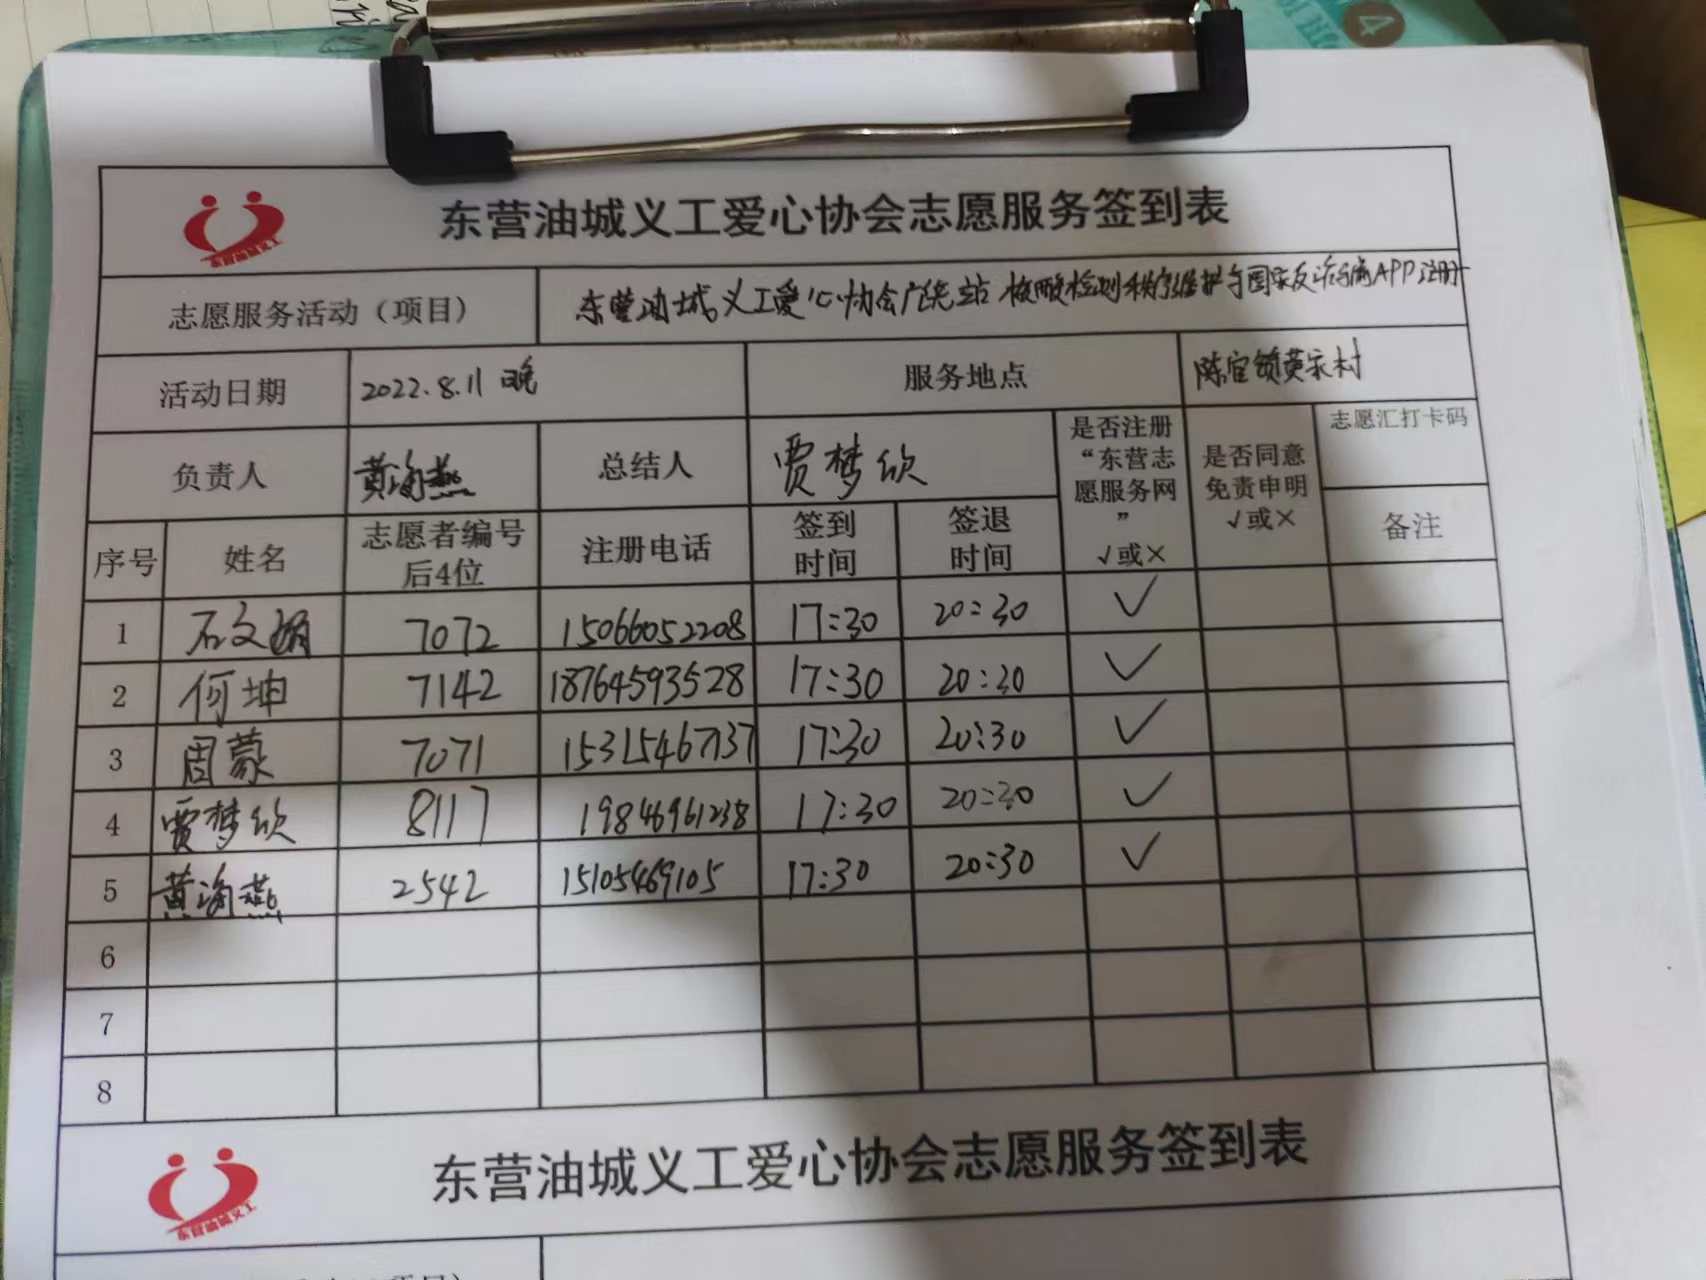 东营油城义工爱心协会志愿服务签到表
东营油城义工
志愿服务活动（项目） 东营油城义工爱心协会广饶站核酸检测秩序维护与国家反诈骗APP注册
活动日期 2022.8.11 晚 服务地点 陈官镇黄家村
负责人 黄海燕 总结人 贾梦欣 是否注册“东营志愿服务网” √或× 是否同意免责申明 √或× 志愿汇打卡码
序号 姓名 志愿者编号后4位 注册电话 签到时间 签退时间 备注
1 石文娟 7072 15066052208 17:30 20:30 ✓
2 何坤 7142 18764593528 17:30 20:30 ✓
3 周蒙 7071 15315467137 17:30 20:30 ✓
4 贾梦欣 8117 19846961238 17:30 20:30 ✓
5 黄海燕 2542 15105469105 17:30 20:30 ✓
6
7
8
东营油城义工爱心协会志愿服务签到表
东营油城义工